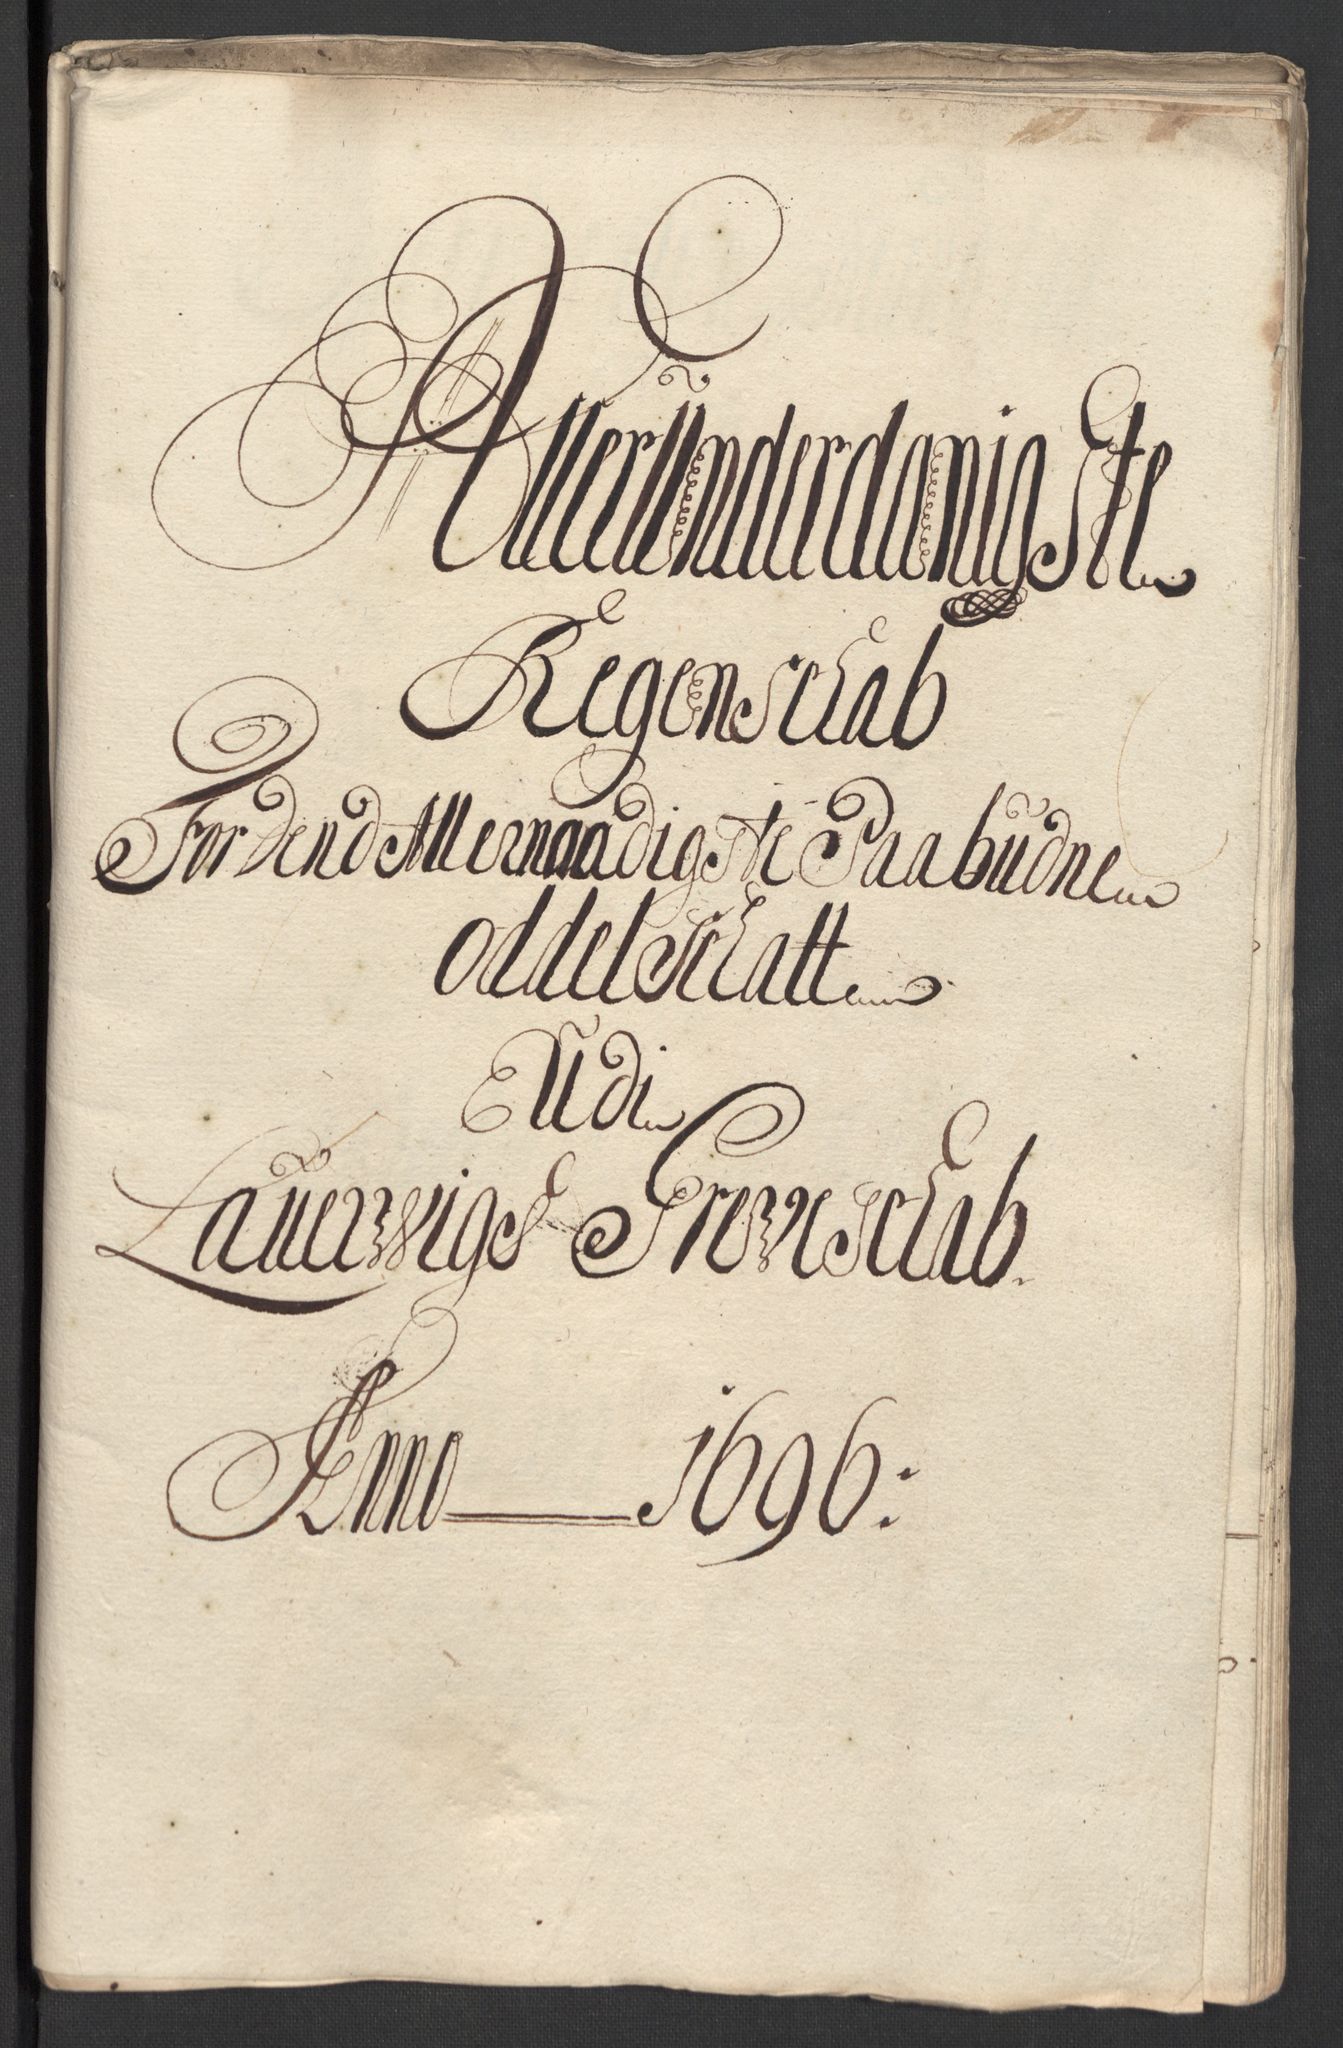 AllerUnderdanigSte
RegenSchab
For dend Allernaadigste Paabüdne
Oddel Schatt
Udi
Laüervigs Grevschab.
Anno 1696: